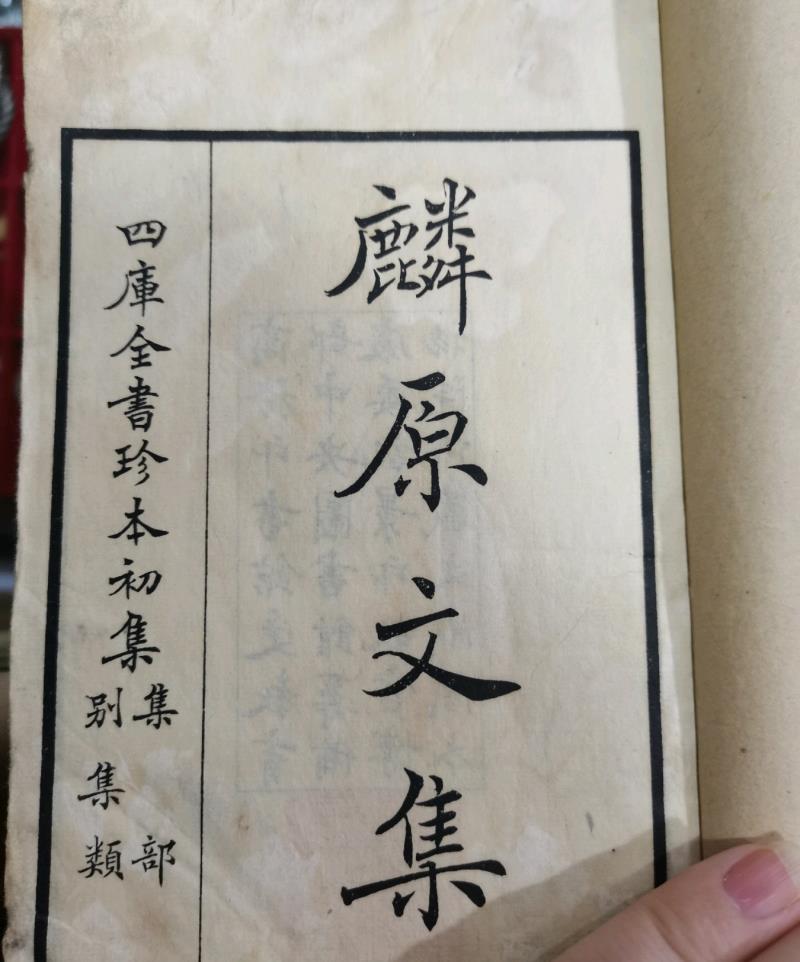 麟原文集
四庫全書珍本初集
集部
別集類